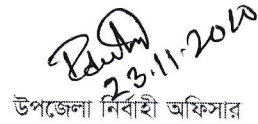 23.11.2020
উপজেলা নির্বাহী অফিসার